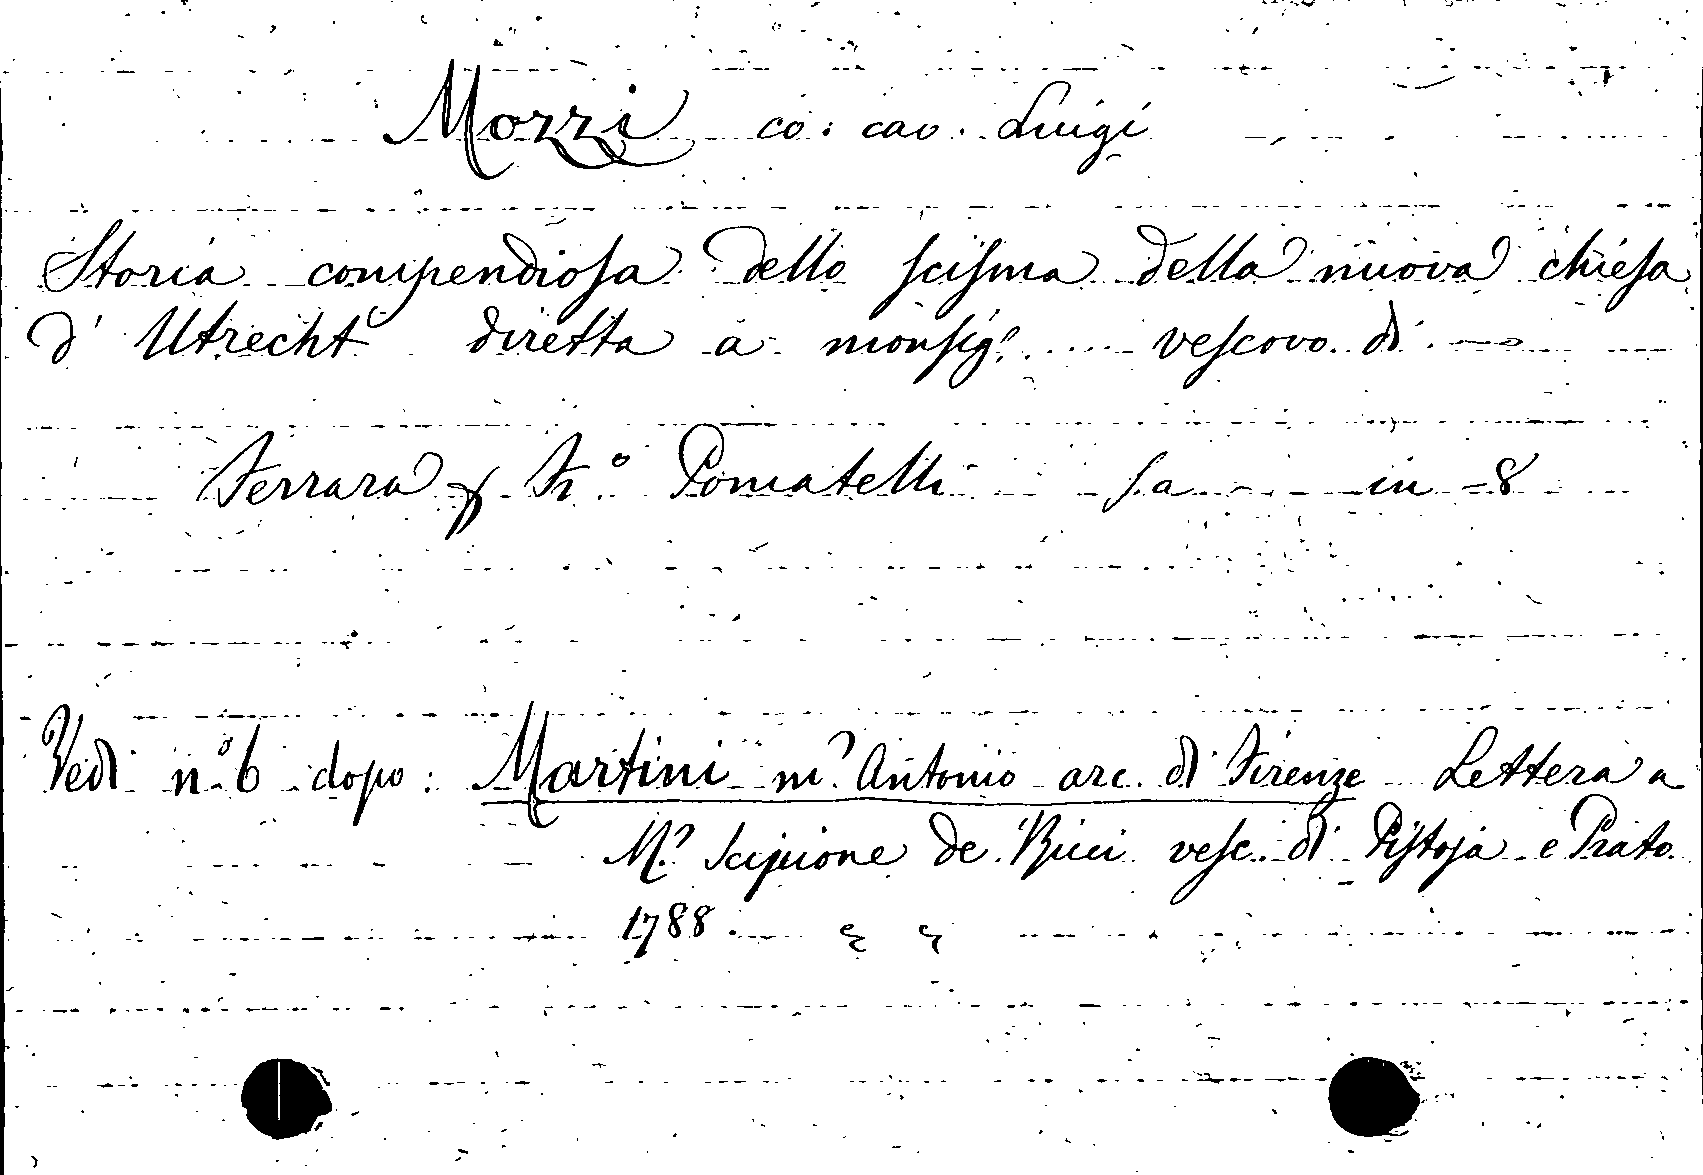 Mozzi co: cav. Luigi
Storia compendiosa dello scisma della nuova chiesa
d' Utrecht diretta a monsig.r ..... vescovo di ---
Ferrara p Fr.° Pomatelli s.a in -8
Vedi n.° 6 dopo: Martini m.r Antonio arc. di Firenze Lettera a
M.r Scipione de Ricci vesc. di Pistoja e Prato
1788.